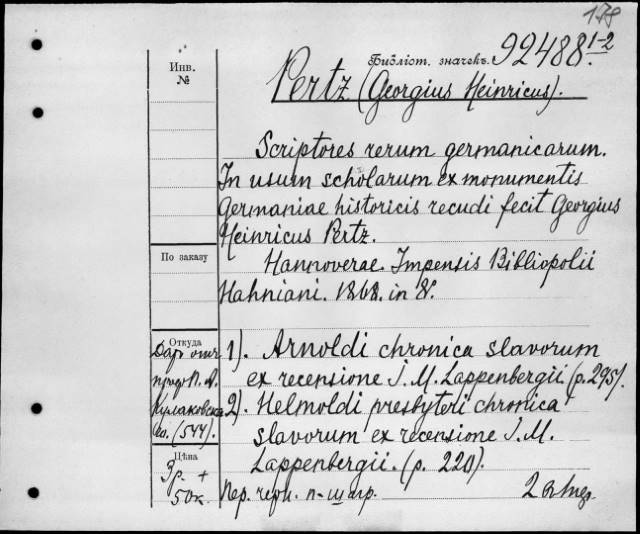 178
Библіот. значекъ. 92488.1-2
Инв.
№
Pertz (Georgius Heinricus).
Scriptores rerum germanicarum.
In usum scholarum ex monumentis
Germaniae historicis recudi fecit Georgius
Heinricus Pertz.
По заказу
Hannoverae. Impensis Bibliopolii
Hahniani. 1868. in 8°.
Откуда
Даръ отъ
проф. П. А.
Кулаковска
го. (544).
1). Arnoldi chronica slavorum
ex recensione I. M. Lappenbergii (p. 295).
2). Helmoldi presbyteri chronica
slavorum ex recensione I. M.
Lappenbergii. (p. 220).
Цѣна
3р. +
50к.
Пер. п-ш пр.
2